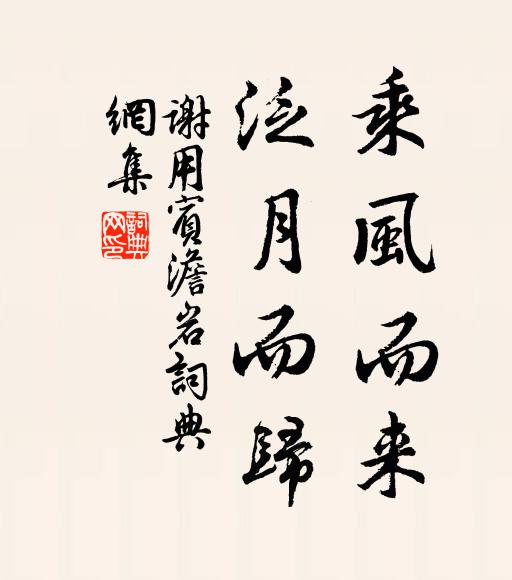 乘風而来
泛月而歸
謝用賓澹岩詞典
網集
詞典
网印